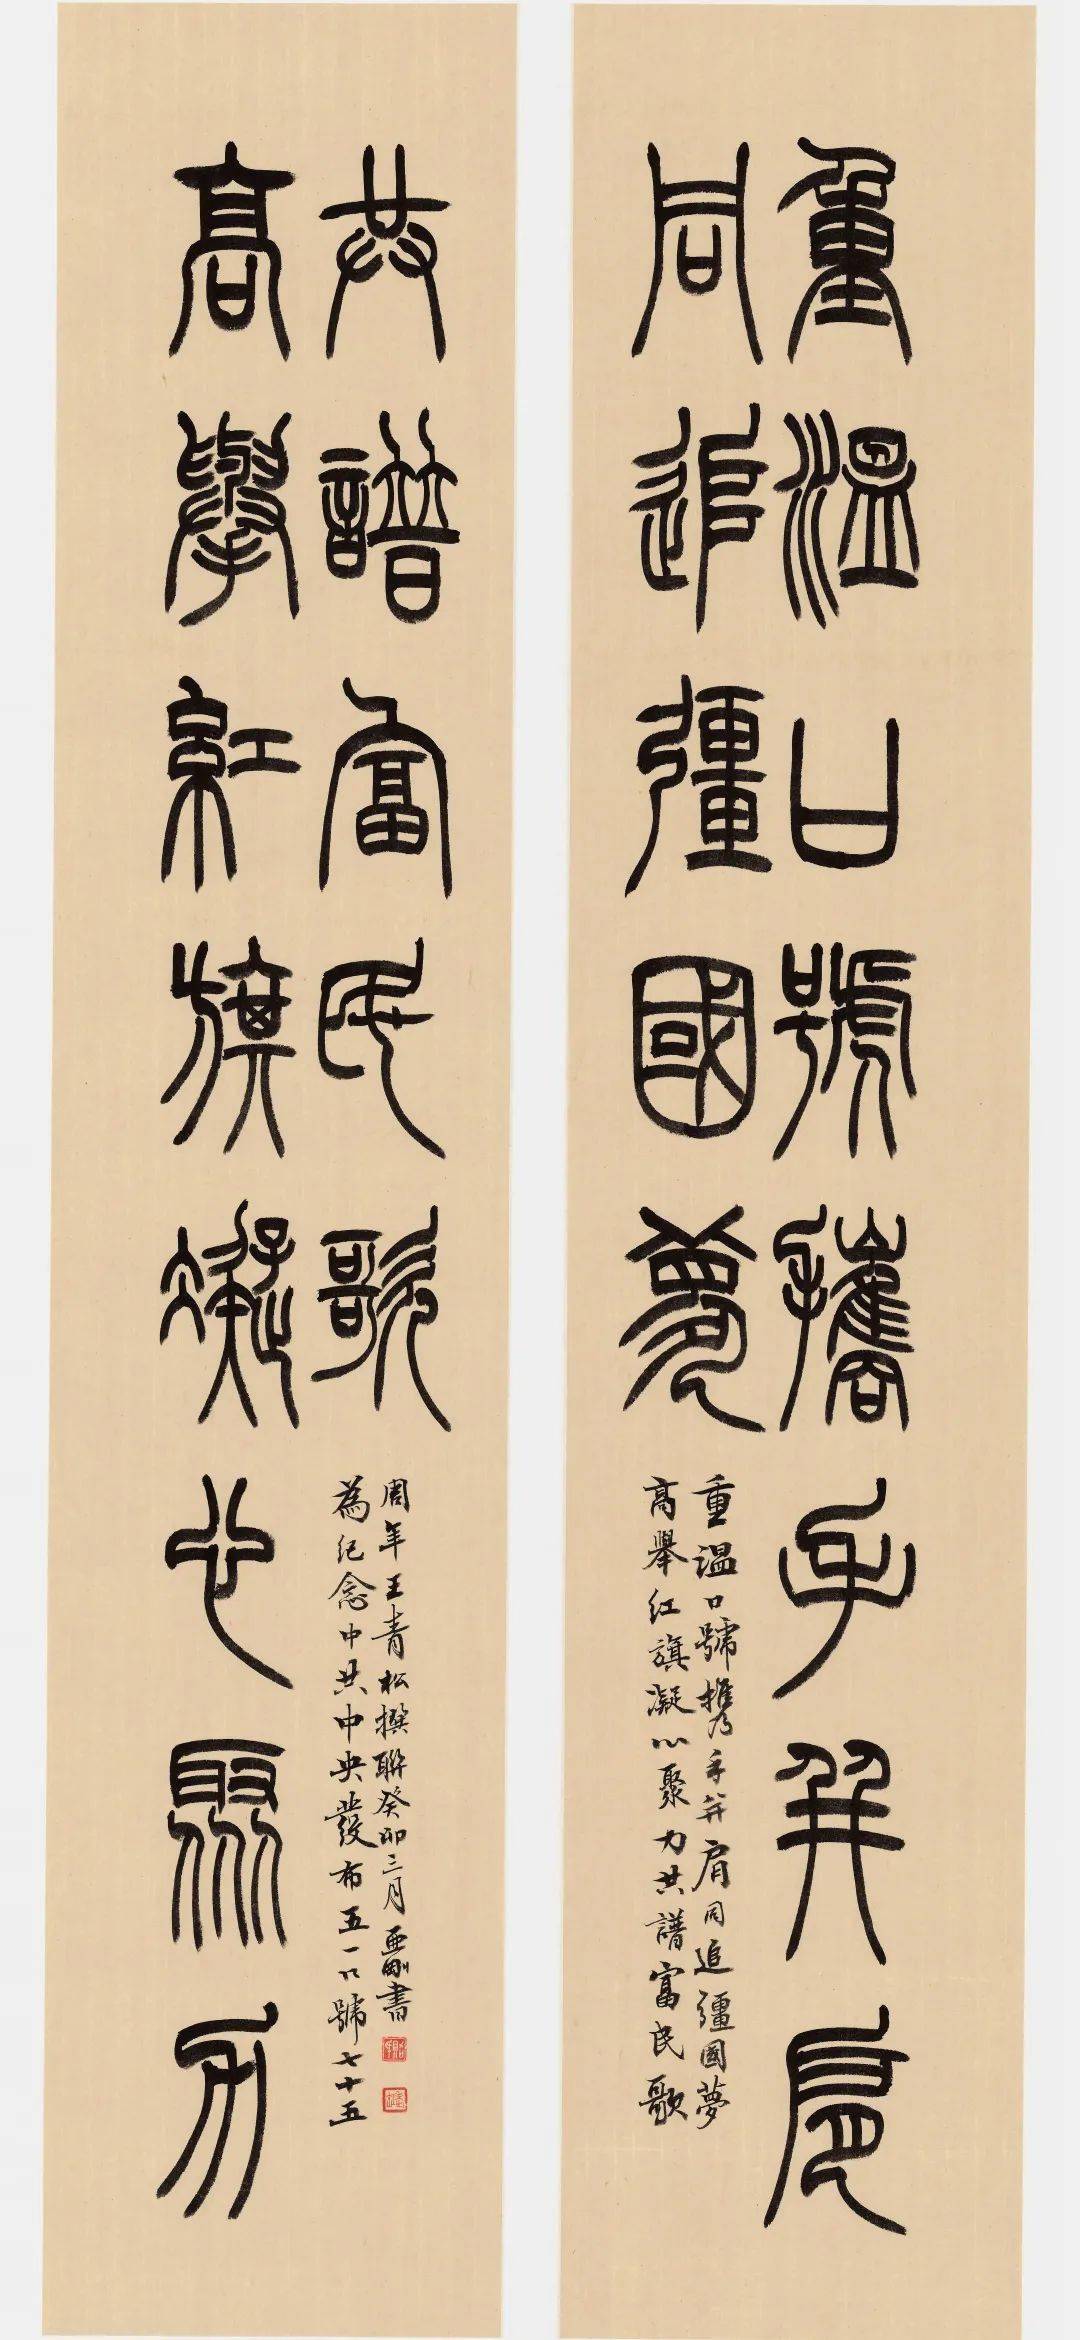 重溫口號攜手并肩
同追彊國夢
重温口號携手并肩同追彊國夢
高舉红旗凝心聚力共譜富民歌
高舉紅旗凝心聚力
共譜富民歌
為纪念中共中央發布五一口號七十五
周年王青松撰聯癸卯三月亞剛書